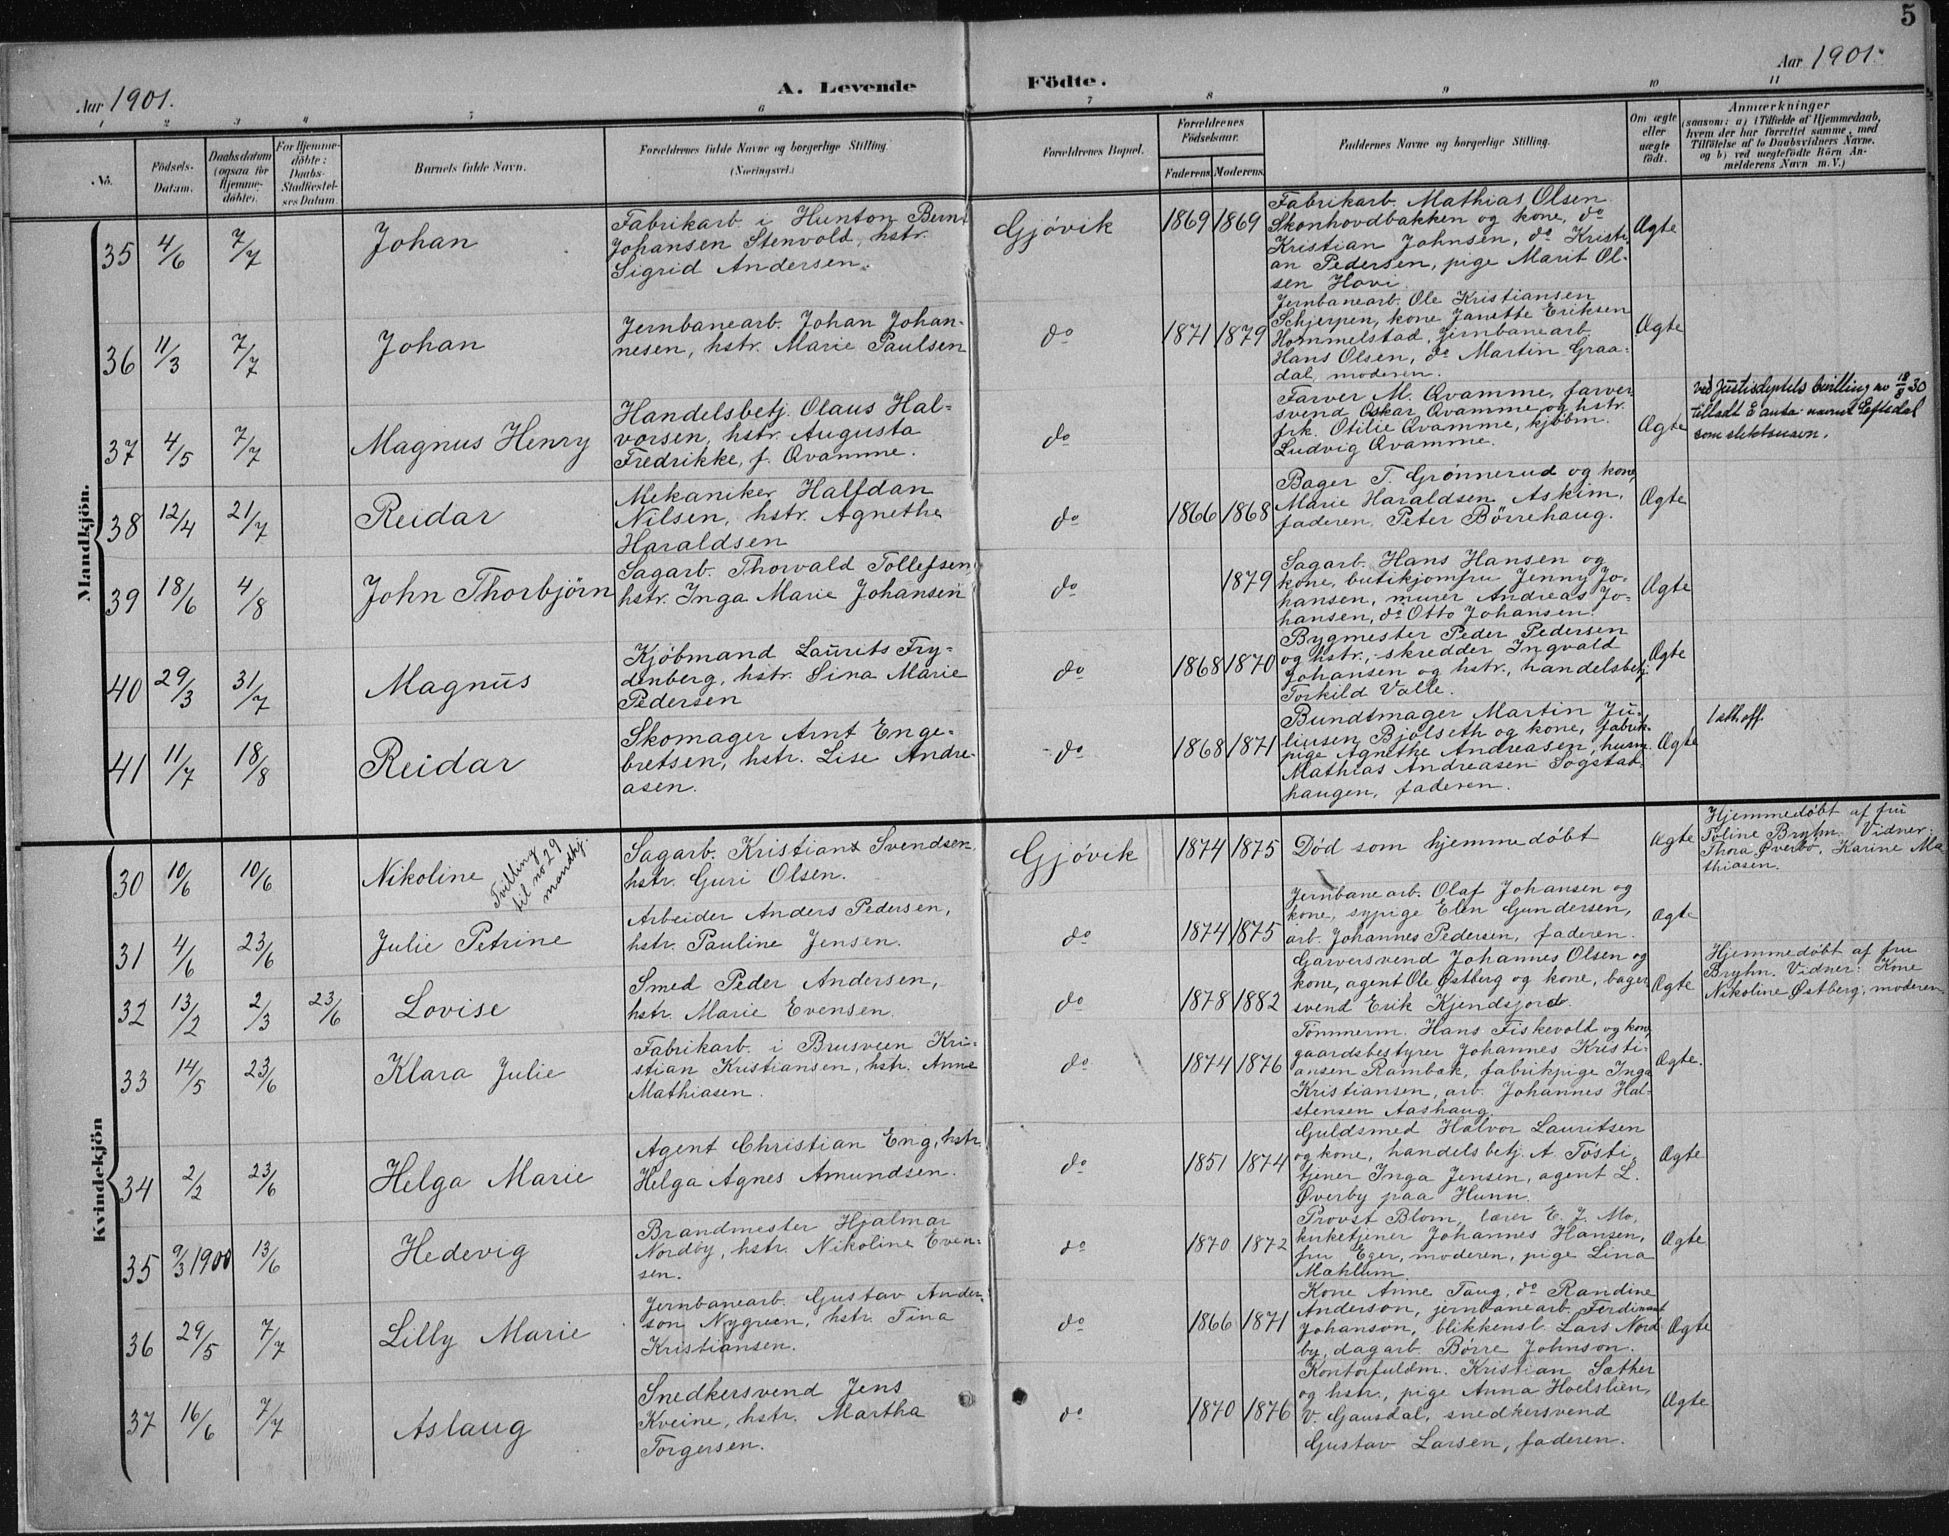 5
Aar 1901.
A. Levende
Födte.
Aar 1901.
1 2 3 4 5 6 7 8 9 10 11
No.
Födsels-
Datum.
Daabsdatum
(ogsaa for
Hjemme-
döbte).
For Hjemme-
döbte:
Daabs-
Stadfæstel-
ses Datum.
Barnets fulde Navn.
Forældrenes fulde Navne og borgerlige Stilling.
(Næringsvei.)
Forældrenes Bopæl.
Forældrenes
Födselsaar.
Faderens. Moderens.
Faddernes Navne og borgerlige Stilling.
Om ægte
eller
uægte
födt.
Anmærkninger
(saasom: a) i Tilfælde af Hjemmedaab,
hvem der har forrettet samme, med
Tilföielse af to Daabsvidners Navne,
og b) ved uægtefödte Börn An-
melderens Navn m. V.)
Mandkjön.
35 4/6 7/7
Johan
Fabrikarb. i Hunton Bernt
Johansen Stenvold, hstr.
Sigrid Andersen.
Gjövik
1869 1869
Fabrikarb. Mathias Olsen
Skonhovdbakken og kone, do
Kristian Johnsen, do Kristi-
an Pedersen, pige Marit Ol-
sen Hovi.
Ægte
36 11/3 7/7
Johan
Jernbanearb. Johan Johan-
nesen, hstr. Marie Paulsen
do
1871 1879
Jernbanearb. Ole Kristiansen
Schjerpen, kone Janette Eriksen
Hommelstad, jernbanearb.
Hans Olsen, do Martin Graa-
dal, moderen.
Ægte
37 4/5 7/7
Magnus Henry
Handelsbetj. Olaus Hal-
vorsen, hstr. Augusta
Fredrikke, f. Qvamme.
do
Farver M. Qvamme, farver-
svend Oskar Qvamme og hstr.
frk. Otilie Qvamme, kjöbm.
Ludvig Qvamme.
Ægte
ved Justisdeptets bevilling av 18/8 30
tilladt å anta navnet
som slektsnavn.
38 12/4 21/7
Reidar
Mekaniker Halfdan
Nilsen, hstr. Agnethe
Haraldsen
do
1866 1868
Bager T. Grönnerud og kone,
Marie Haraldsen Askim,
faderen, Peter Börrehaug.
Ægte
39 18/6 4/8
John Thorbjörn
Sagarb. Thorvald Tollefsen
hstr. Inga Marie Johansen
do
1879
Sagarb. Hans Hansen og
kone, butikjomfru Jenny Jo-
hansen, murer Andreas Jo-
hansen, do Otto Johansen.
Ægte
40 29/3 31/7
Magnus
Kjöbmand Laurits Fry-
denberg, hstr. Sina Marie
Pedersen
do
1868 1870
Bygmester Peder Pedersen
og hstr., skredder Ingvald
Johansen og hstr., handelsbetj.
Torkild Valle.
Ægte
41 11/7 18/8
Reidar
Skomager Arnt Enge-
bretsen, hstr. Lise Andre-
asen.
do
1868 1871
Bundtmager Martin Ju-
liusen Bjölseth og kone, fabrik-
pige Agnethe Andreasen, husm.
Mathias Andreasen Sogstad-
haugen, faderen.
Ægte
1 ath. off.
Kvindekjön
30 10/6 10/6
Nikoline
Tvilling
til no 29
mandkj.
Sagarb. Kristian Svendsen
hstr. Guri Olsen.
Gjövik
1874 1875
Död som hjemmedöbt
Ægte
Hjemmedöbt af fru
Toline Bryhn. Vidner:
Thora Överbö, Karine Ma
thiasen.
31 4/6 23/6
Julie Petrine
Arbeider Anders Pedersen,
hstr. Pauline Jensen.
do
1874 1875
Jernbanearb. Olaf Johansen og
kone, sypige Elen Gundersen,
arb. Johannes Pedersen, faderen.
Ægte
32 13/2 2/3 23/6
Lovise
Smed Peder Andersen,
hstr. Marie Evensen.
do
1878 1882
Garversvend Johannes Olsen og
kone, agent Ole Østberg og kone, bager
svend Erik Kjendsjord.
Ægte
Hjemmedöbt af fru
Bryhn. Vidner: Kone
Nikoline Østberg, moderen.
33 14/5 23/6
Klara Julie
Fabrikarb. i Brusveen Kri-
stian Kristiansen, hstr. Anne
Mathiasen.
do
1874 1876
Tömmerm. Hans Fiskevold og kone
gaardsbestyrer Johannes Kristi-
ansen Rambæk, fabrikpige Inga
Kristiansen, arb. Johannes Hal-
stensen Aashaug.
Ægte.
34 2/2 23/6
Helga Marie
Agent Christian Eng, hstr.
Helga Agnes Amundsen.
do
1851 1874
Guldsmed Halvor Lauritsen
og kone, handelsbetj. A. Tösti,
tjener Inga Jensen, agent L.
Øverby paa Hunn.
Ægte
35 9/3 1900 13/6
Hedevig
Brandmester Hjalmar
Nordby, hstr. Nikoline Even-
sen.
do
1870 1872
Provst Blom, lærer E. J. Mo,
kirketjener Johannes Hansen,
fru Eger, moderen, pige Lina
Mæhlum
Ægte
36 29/5 7/7
Lilly Marie
Jernbanearb. Gustav Ander-
son Nygreen, hstr. Tina
Kristiansen.
do
1866 1871
Kone Anne Taug, do Randine
Anderson, jernbanearb. Ferdinant
Johanson, blikkensl. Lars Nord
by, dagarb. Börre Johnson.
Ægte
37 16/6 7/7
Aslaug
Snedkersvend Jens
Kveine, hstr. Martha
Torgersen.
do
1870 1876
Kontorfuldm. Kristian Sæther
og hstr., pige Anna Hoelslien,
V. Gausdal, snedkersvend
Gustav Larsen, faderen.
Ægte